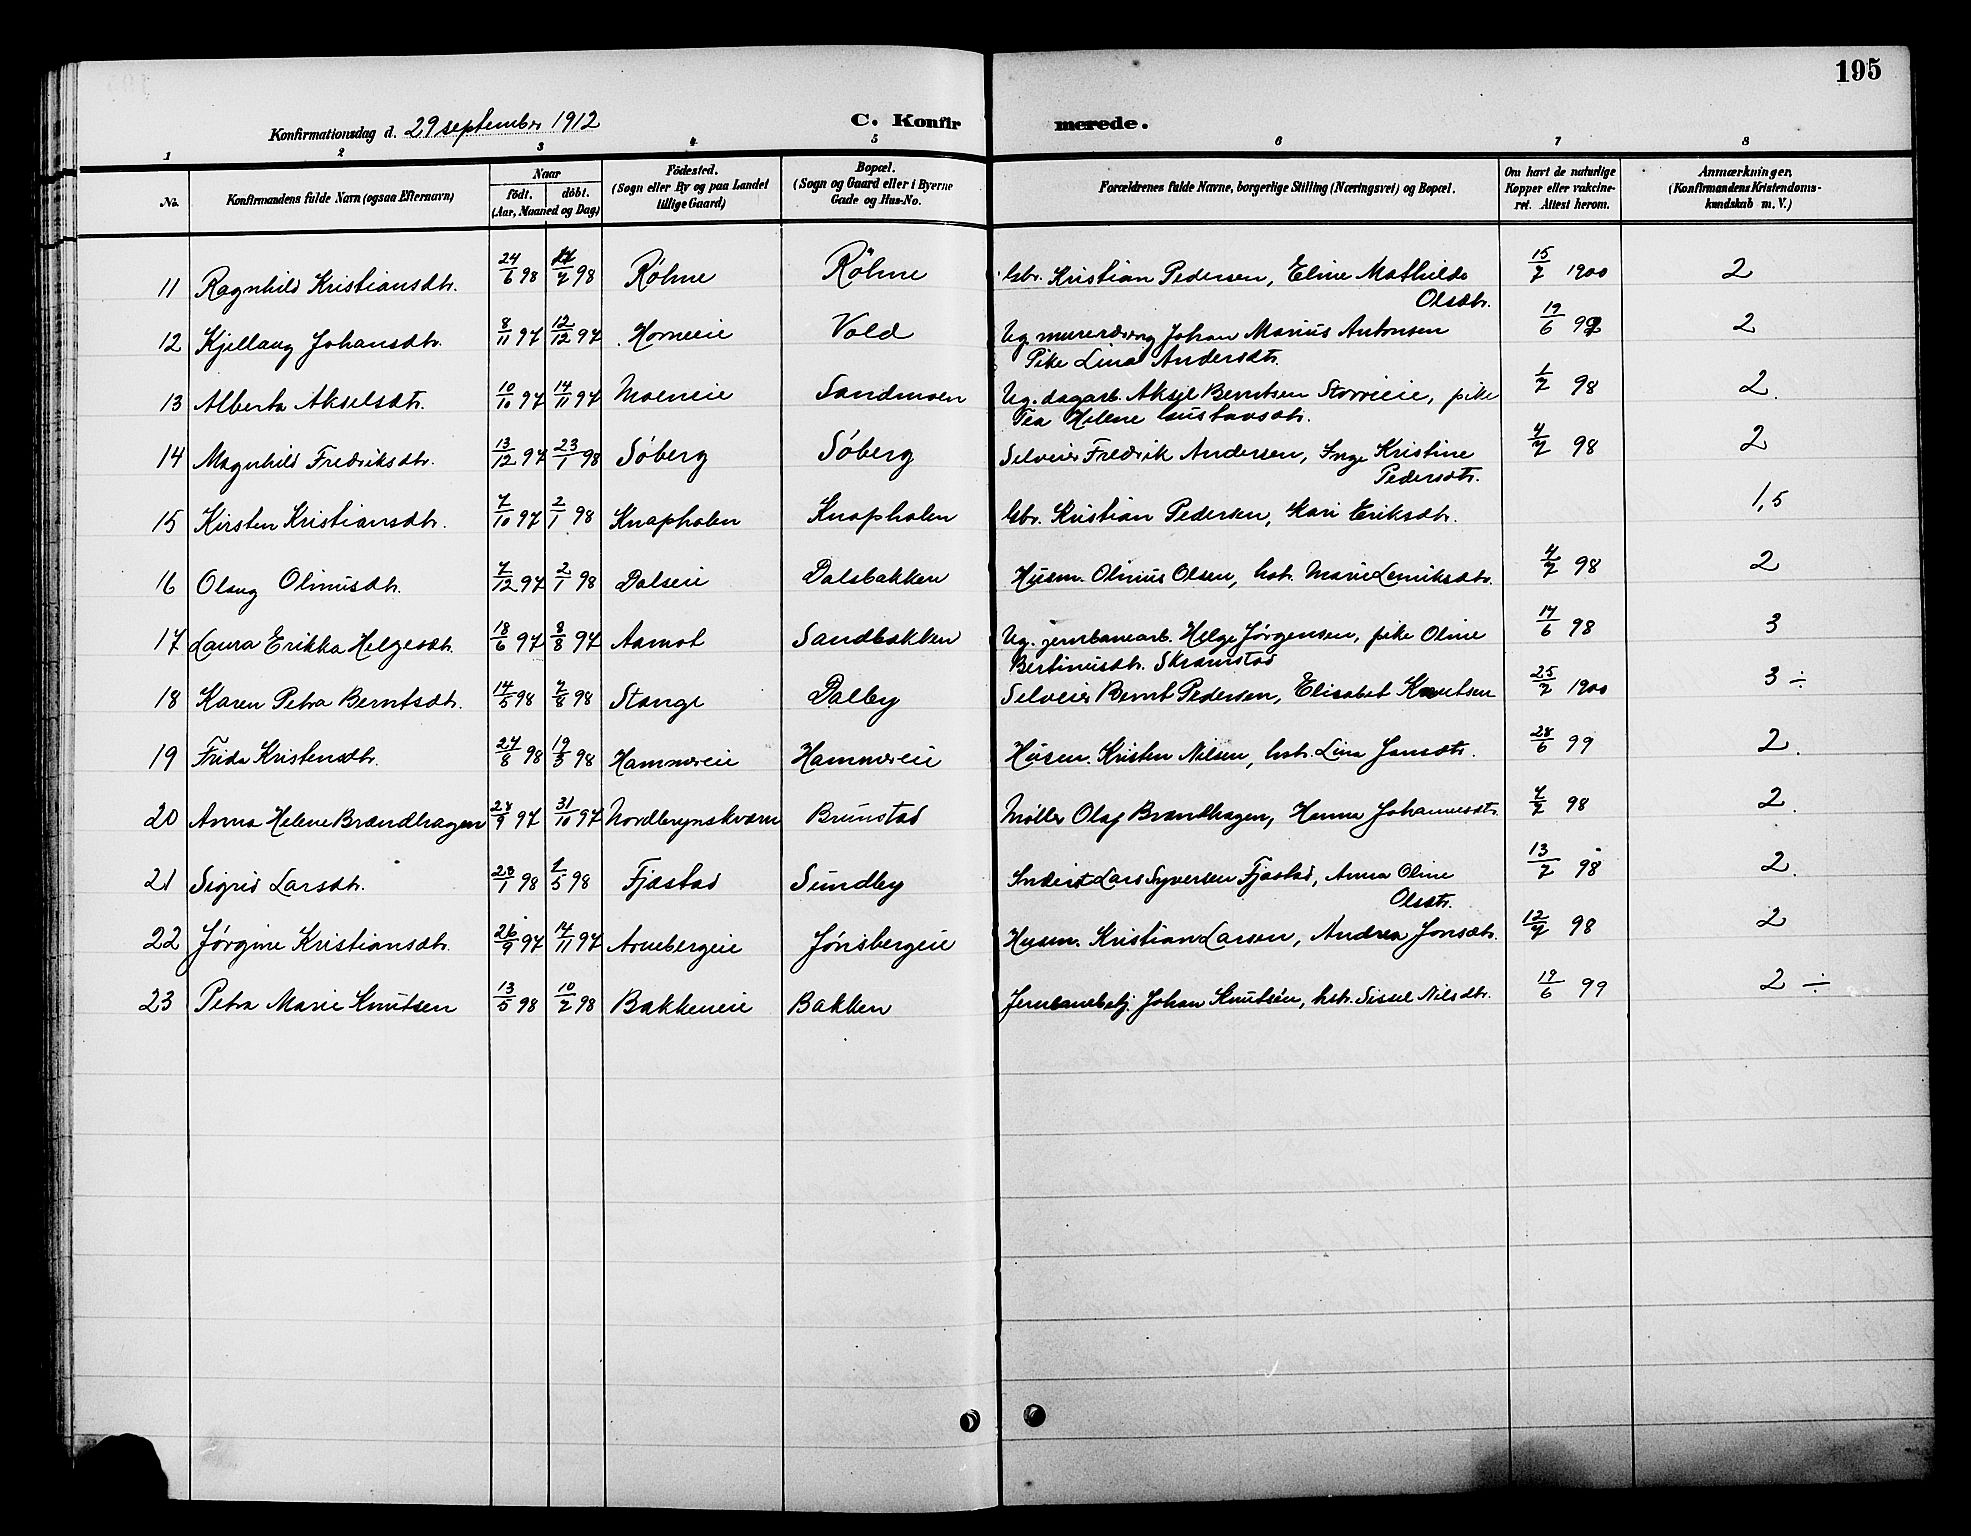 195
Konfirmationsdag d. 29 september 1912 C. Konfirmerede.
1 2 3 4 5 6 7 8
No. Konfirmandens fulde Navn (ogsaa Efternavn) Naar født. døbt. (Aar, Maaned og Dag) Födested. (Sogn eller By og paa Landet tillige Gaard) Bopæl. (Sogn og Gaard eller i Byerne Gade og Hus-No. Forældrenes fulde Navne, borgerlige Stilling (Næringsvei) og Bopæl. Om havt de naturlige Kopper eller vakcineret. Attest herom. Anmærkninger, (Konfirmandens Kristendomskundskab m. V.)
11 Ragnhild Kristiansdtr. 24/6 98 /7 98 Røhne Røhne Gbr. Kristian Pedersen, Eline Mathilde 15/7 1900 2
Olsdtr.
12 Kjellaug Johansdtr. 8/11 97 12/12 97 Horneie Vold Ug. murerdreng Johan Marius Antonsen 19/6 99 2
Pike Lina Andersdtr.
13 Alberta Akselsdtr. 10/10 97 14/11 97 Moeneie Sandmoen Ug. dagarb. Aksel Berntsen Storrieie, pike 1/7 98 2.
Tea Helene Gustavsdtr.
14 Magnhild Fredriksdtr. 13/12 97 23/1 98 Søberg Søberg Selveier Fredrik Andersen, Inge Kristine 4/7 98 2
Pedersdtr.
15 Kirsten Kristiansdtr. 7/10 97 2/1 98 Knapholen Knapholen Gbr. Kristian Pedersen, Kari Eriksdtr. 1,5
16 Olaug Olinusdtr. 7/12 97 2/1 98 Dalseie Dalsbakken Husm. Olinius Olsen, hstr. Marie Lamiksdtr. 4/7 98 2
17 Laura Erikka Helgesdtr. 18/6 97 8/8 97 Aamot Sandbakken Ug. jernbanearb. Helge Jørgensen, pike Oline 17/6 98 3
Bertinusdtr. Skramstad
18 Karen Petra Berntsdtr. 14/5 98 7/8 98 Stange Dalby Selveier Bernt Pedersen, Elisabet Knutsen 25/7 1900 3 ÷
19 Frida Kristensdtr. 27/8 98 19/3 98 Hammereie Hammereie Husm. Kristen Nilsen, hstr. Lina Jansdtr. 28/6 99 2.
20 Anna Helene Brændhagen 28/9 97 31/10 97 Nordbrynskværn Brunstad Møller Olaf Brændhagen, Hanna Johannesdtr. 4/7 98 2.
21 Sigrid Larsdtr. 23/1 98 1/5 98 Fjæstad Sundby Inderst Lars Syversen Fjæstad, Anna Oline 13/7 98 2.
Olsdtr.
22 Jørgine Kristiansdtr. 26/9 97 14/11 97 Arnebergeie Jønsbergeie Husm. Kristian Larsen, Andrea Jonsdtr. 12/7 98 2
23 Petra Marie Knutsen 13/5 98 10/7 98 Bakkeneie Bakken Jernbanebetj. Johan Knutsen, hstr. Sissel Nilsdtr. 19/6 99 2 ÷